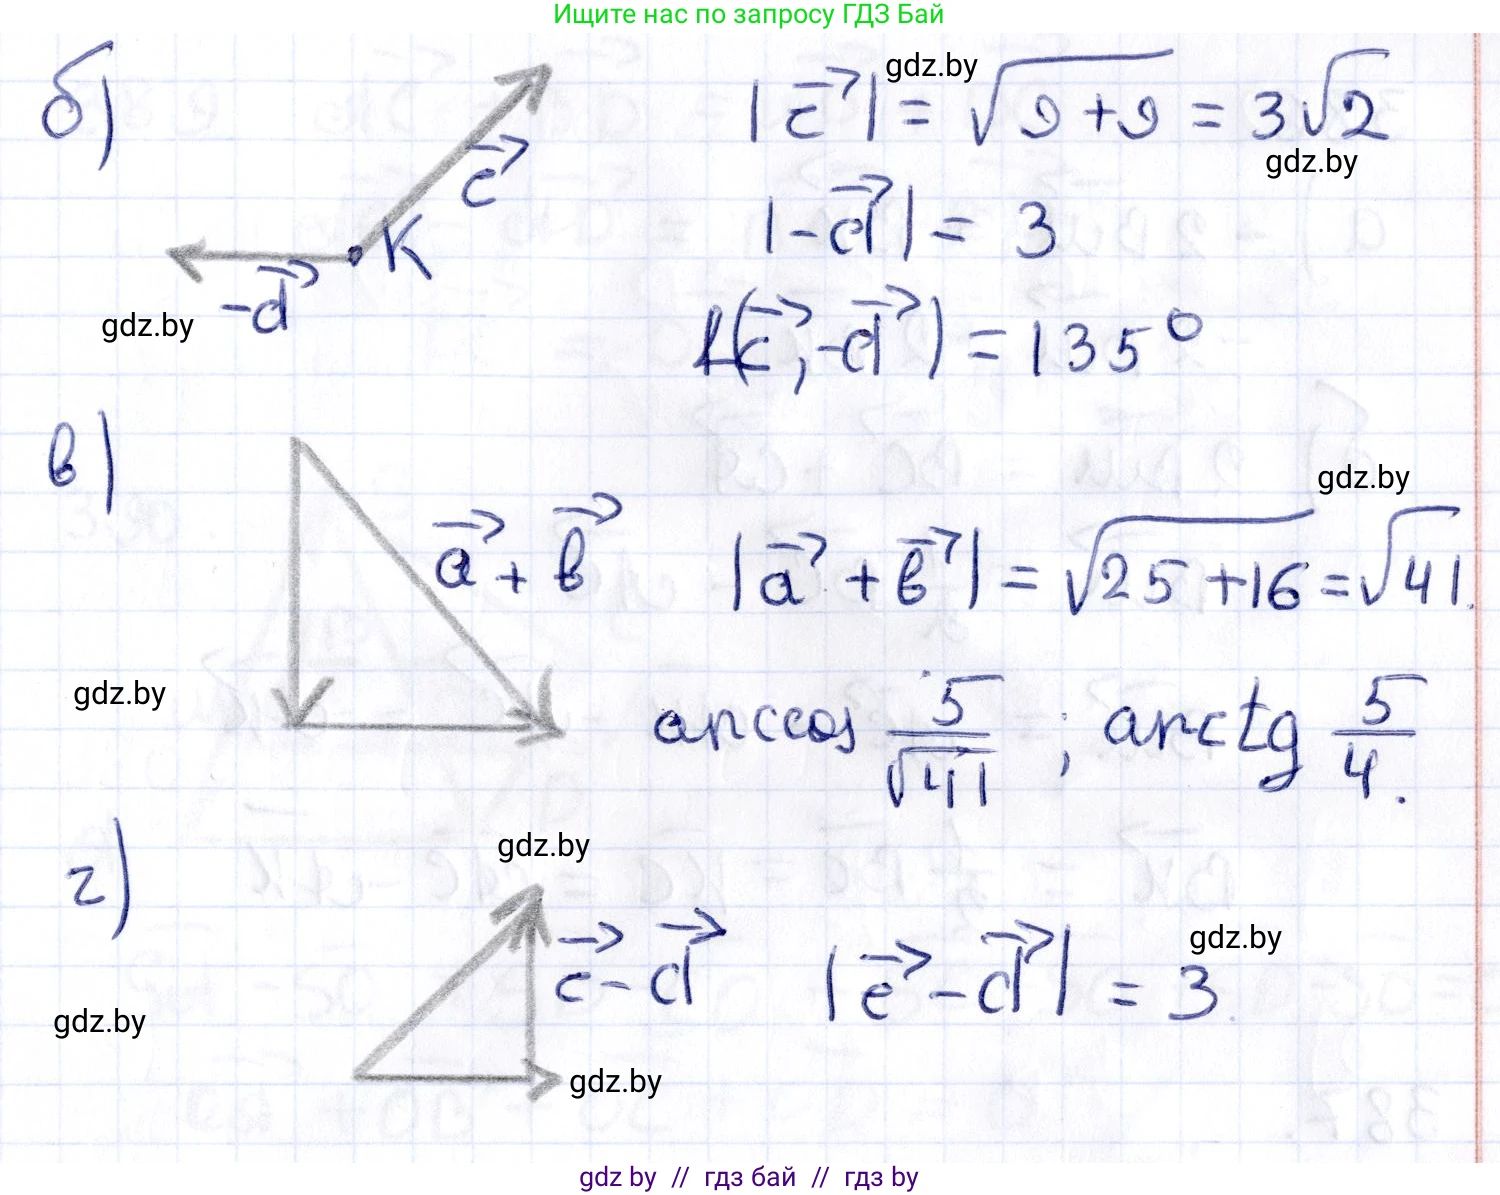 Ищите нас по запросу ГДЗ Бай
б)
c⃗
K
-d⃗
gdz.by
|c⃗| = √9+9 = 3√2
gdz.by
gdz.by
|-d⃗| = 3
∠(c⃗, -d⃗) = 135°
в)
a⃗ + b⃗
gdz.by
|a⃗ + b⃗| = √25+16 = √41.
gdz.by
arccos 5/√41 ; arctg 5/4.
г)
gdz.by
c⃗ - d⃗
|c⃗ - d⃗| = 3.
gdz.by
gdz.by
gdz.by
gdz.by // гдз бай // гдз by